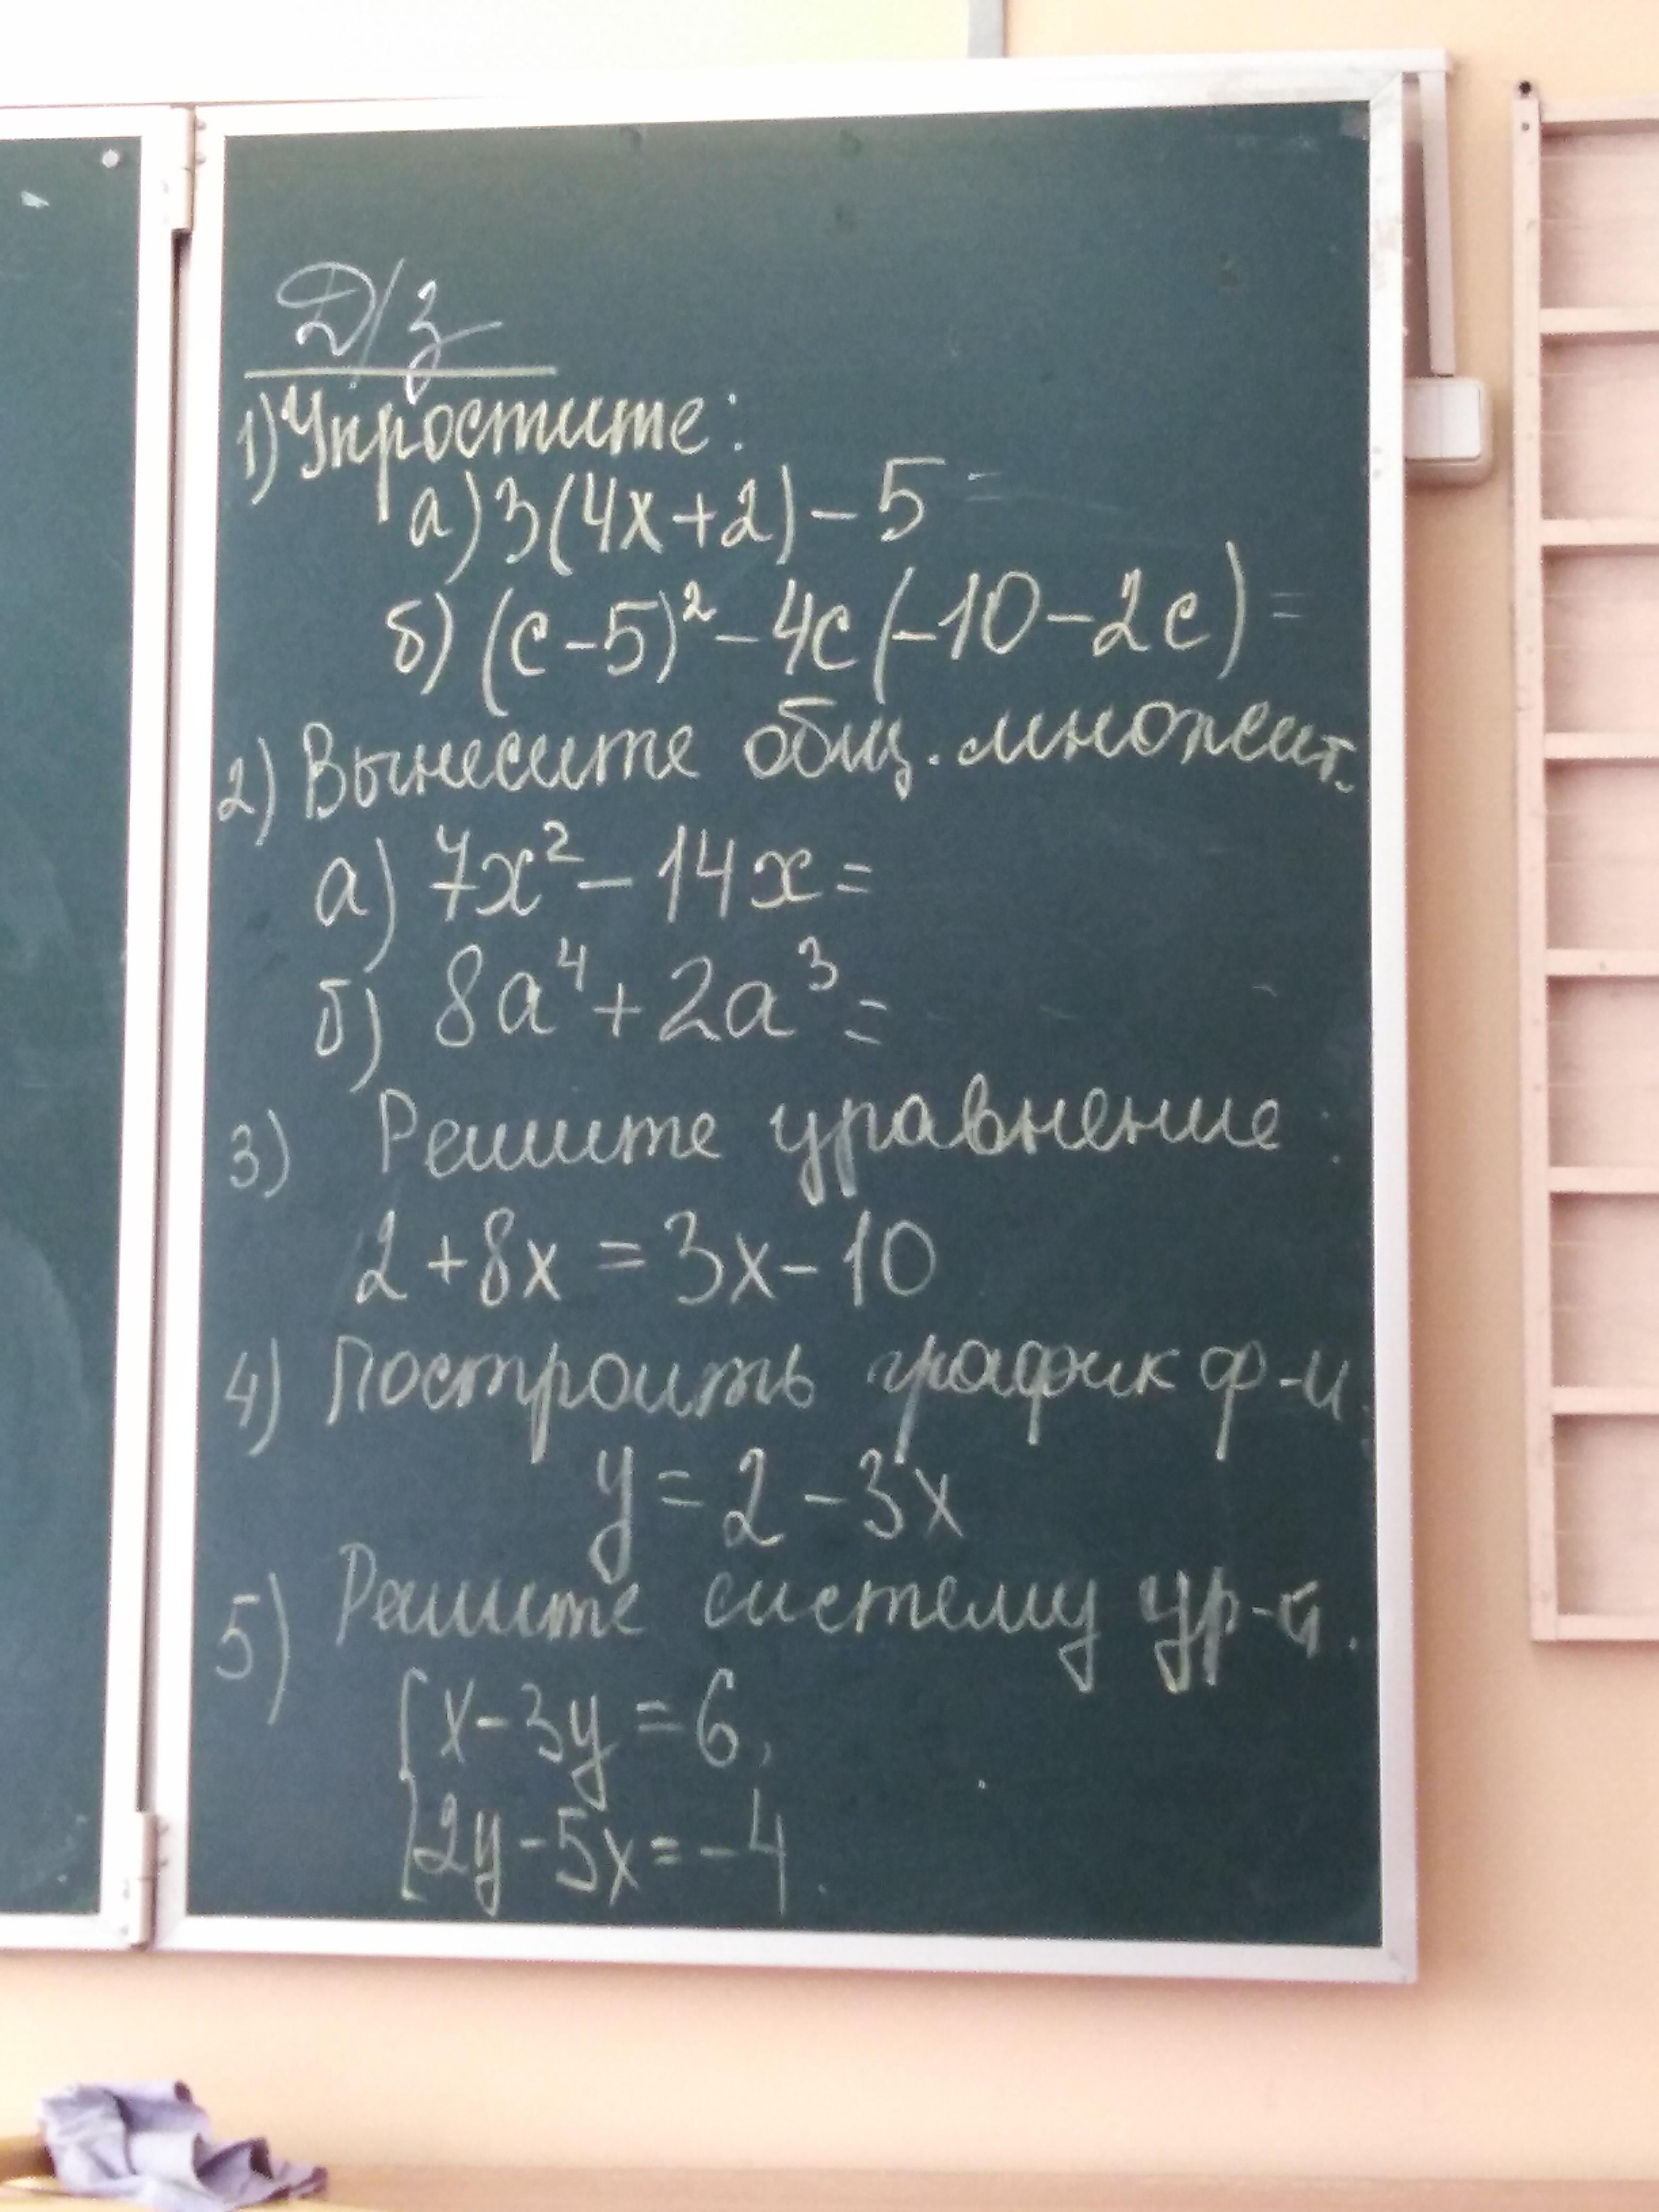 Д/з
1) Упростите:
а) 3(4x+2) - 5 =
б) (c-5)² - 4c(-10-2c) =
2) Вынесите общ. множит.
а) 7x² - 14x =
б) 8a⁴ + 2a³ =
3) Решите уравнение
2 + 8x = 3x - 10
4) Построить график ф-и.
y = 2 - 3x
5) Решите систему ур-й.
{x - 3y = 6,
{2y - 5x = -4